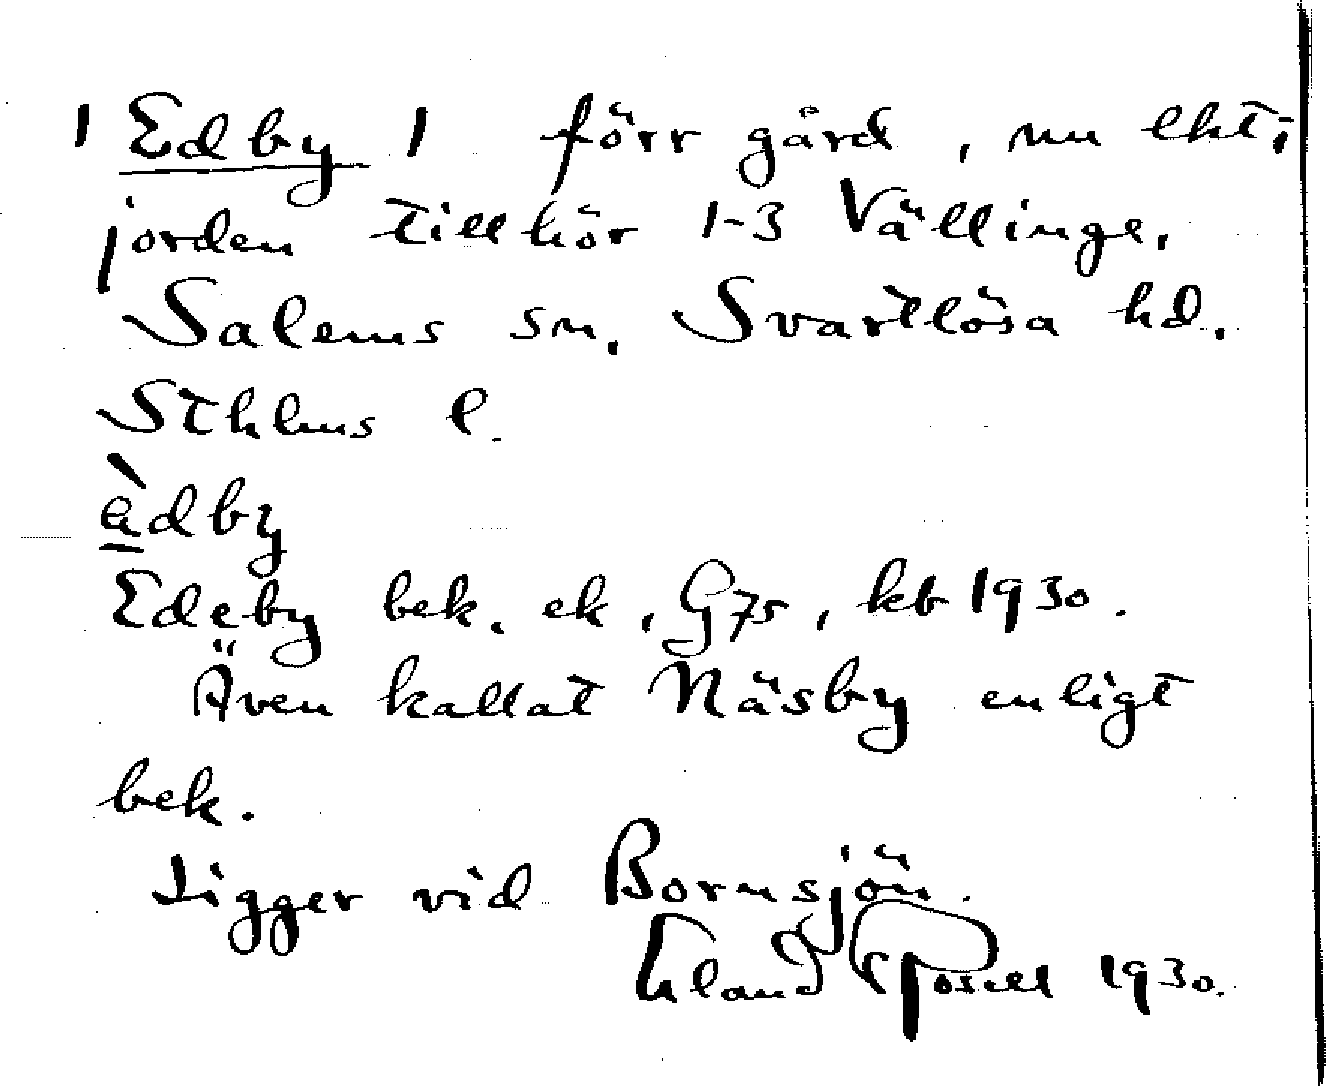 1 Edby 1 förr gård, nu lht;
jorden tillhör 1-3 Vällinge,
Salems sn, Svartlösa hd.
Sthlms l.
èdby
Edeby bek. ek, G75, kb 1930.
Även kallat Näsby enligt
bek.
Ligger vid Bornsjön.
1930.